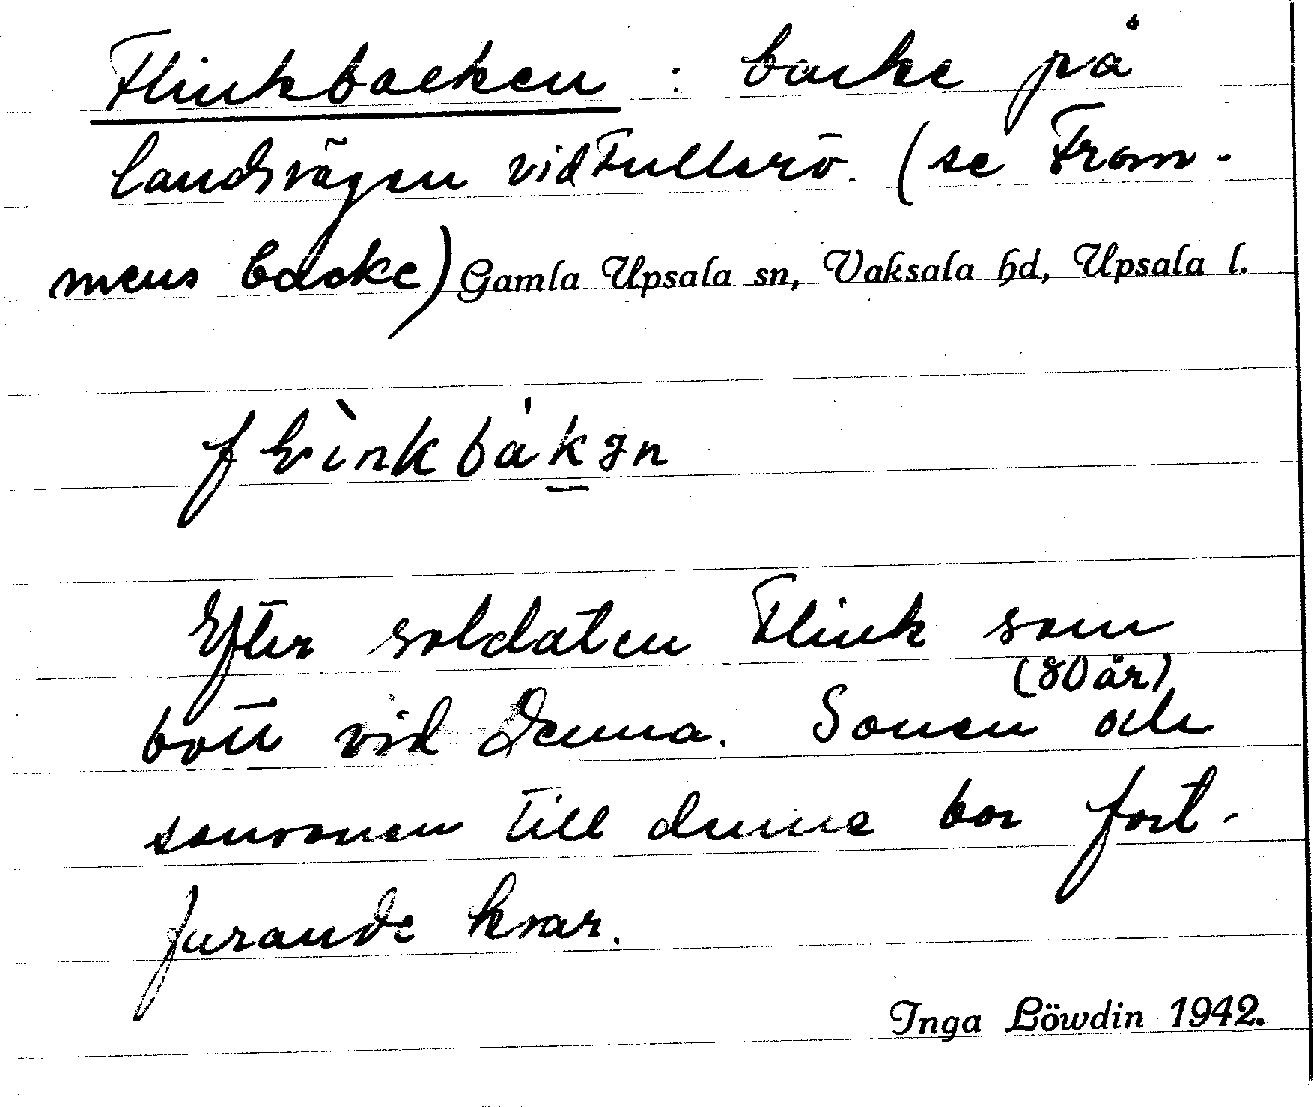 Flinkbacken : backe på
landsvägen vid Fullerö. (se From-
mens backe) Gamla Upsala sn, Vaksala hd, Upsala l.
Efter soldaten Flink som
(80 år)
bott vid denna. Sonen och
sonsonen till denne bor fort-
farande kvar.
Inga Löwdin 1942.